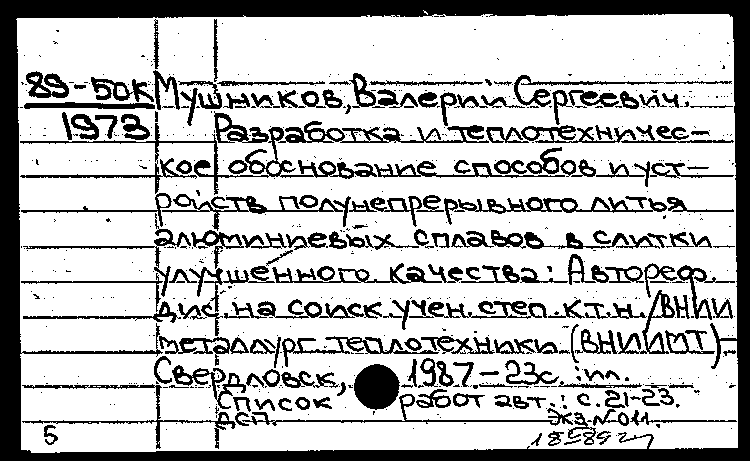 89-50К Мушников, Валерий Сергеевич.
1973 Разработка и теплотехничес-
кое обоснование способов и уст-
ройств полунепрерывного литья
алюминиевых сплавов в слитки
улучшенного качества: Автореф.
дис. на соиск. учен. степ. к.т.н. /ВНИИ
металлург. теплотехники (ВНИИМТ)-
Свердловск, 1987.-23с. :ил.
Список работ авт.: с.21-23.
ДСП. Экз.N 011.
5